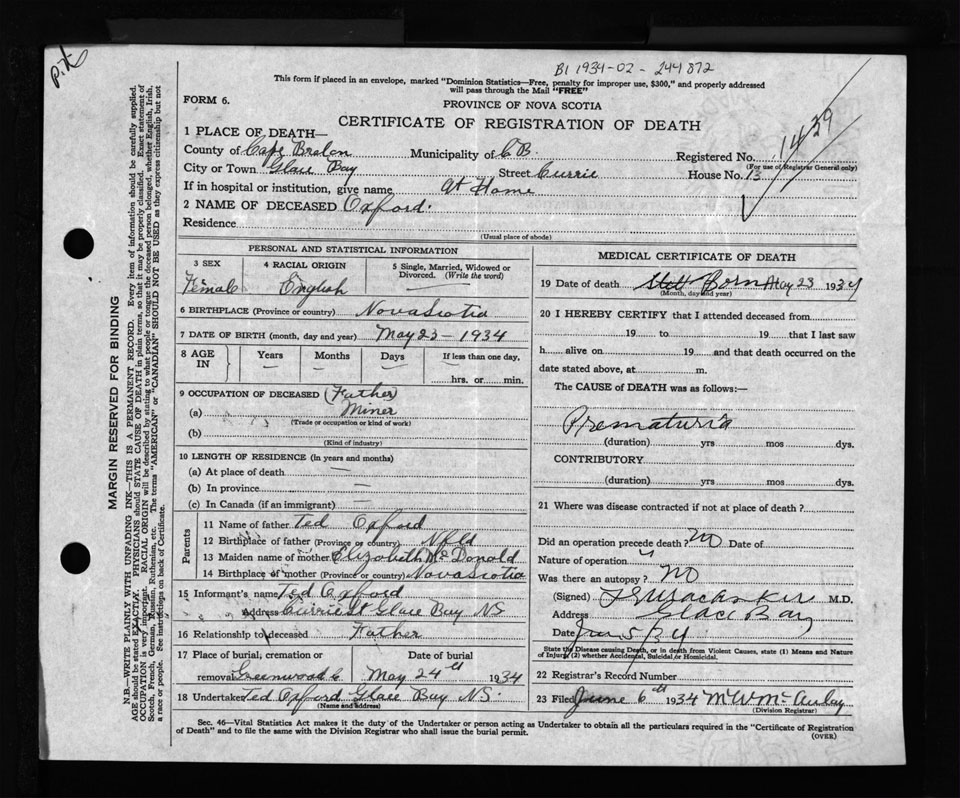 B1 1934-02-244872
This form if placed in an envelope, marked "Dominion Statistics—Free, penalty for improper use, $300," and properly addressed
will pass through the Mail "FREE"
FORM 6.
PROVINCE OF NOVA SCOTIA
CERTIFICATE OF REGISTRATION OF DEATH
1439
1 PLACE OF DEATH—
County of Cape Breton Municipality of C B. Registered No.
(For use of Registrar General only)
City or Town Glace Bay Street Currie House No. 13
If in hospital or institution, give name At Home
2 NAME OF DECEASED Oxford.
Residence
(Usual place of abode)
PERSONAL AND STATISTICAL INFORMATION
3 SEX 4 RACIAL ORIGIN 5 Single, Married, Widowed or Divorced. (Write the word)
Female English —
6 BIRTHPLACE (Province or country) Nova Scotia
7 DATE OF BIRTH (month, day and year) May 23 - 1934
8 AGE IN Years Months Days If less than one day,
— — — hrs. or min.
9 OCCUPATION OF DECEASED (Father)
(a) Miner
(Trade or occupation or kind of work)
(b)
(Kind of industry)
10 LENGTH OF RESIDENCE (in years and months)
(a) At place of death —
(b) In province —
(c) In Canada (if an immigrant) —
Parents
11 Name of father Ted Oxford
12 Birthplace of father (Province or Country) Nfld
13 Maiden name of mother Elizabeth McDonald
14 Birthplace of mother (Province or country) Nova Scotia
15 Informant's name Ted Oxford
Address Currie St Glace Bay NS
16 Relationship to deceased Father
17 Place of burial, cremation or Date of burial
removal Greenwood C May 24th 1934
18 Undertaker Ted Oxford Glace Bay NS.
(Name and address)
MEDICAL CERTIFICATE OF DEATH
19 Date of death Still Born May 23 1934
(Month, day and year)
20 I HEREBY CERTIFY that I attended deceased from
19 to 19 that I last saw
h alive on 19 and that death occurred on the
date stated above, at m.
The CAUSE of DEATH was as follows:—
Prematuria
(duration) yrs mos dys.
CONTRIBUTORY
(duration) yrs mos dys.
21 Where was disease contracted if not at place of death?
Did an operation precede death? No Date of
Nature of operation
Was there an autopsy? No
(Signed) M.D.
Address Glace Bay
Date Jun 5/34
State the Disease causing Death, or in death from Violent Causes, state (1) Means and Nature
of Injury (2) whether Accidental, Suicidal or Homicidal.
22 Registrar's Record Number
23 Filed June 6th 1934 M W McAulay
(Division Registrar)
Sec. 46—Vital Statistics Act makes it the duty of the Undertaker or person acting as Undertaker to obtain all the particulars required in the "Certificate of Registration
of Death" and to file the same with the Division Registrar who shall issue the burial permit.
(OVER)
MARGIN RESERVED FOR BINDING
N.B.—WRITE PLAINLY WITH UNFADING INK—THIS IS A PERMANENT RECORD. Every item of information should be carefully supplied.
AGE should be stated EXACTLY. PHYSICIANS should STATE CAUSE OF DEATH in plain terms, so that it may be properly classified. Exact statement of
OCCUPATION is very important. RACIAL ORIGIN will be described by stating to what people or tongue the deceased person belonged, whether English, Irish,
Scotch, French, German, Russian, Ruthenian, etc. The terms "AMERICAN" or "CANADIAN" SHOULD NOT BE USED as they express citizenship but not
a race or people. See instructions on back of Certificate.